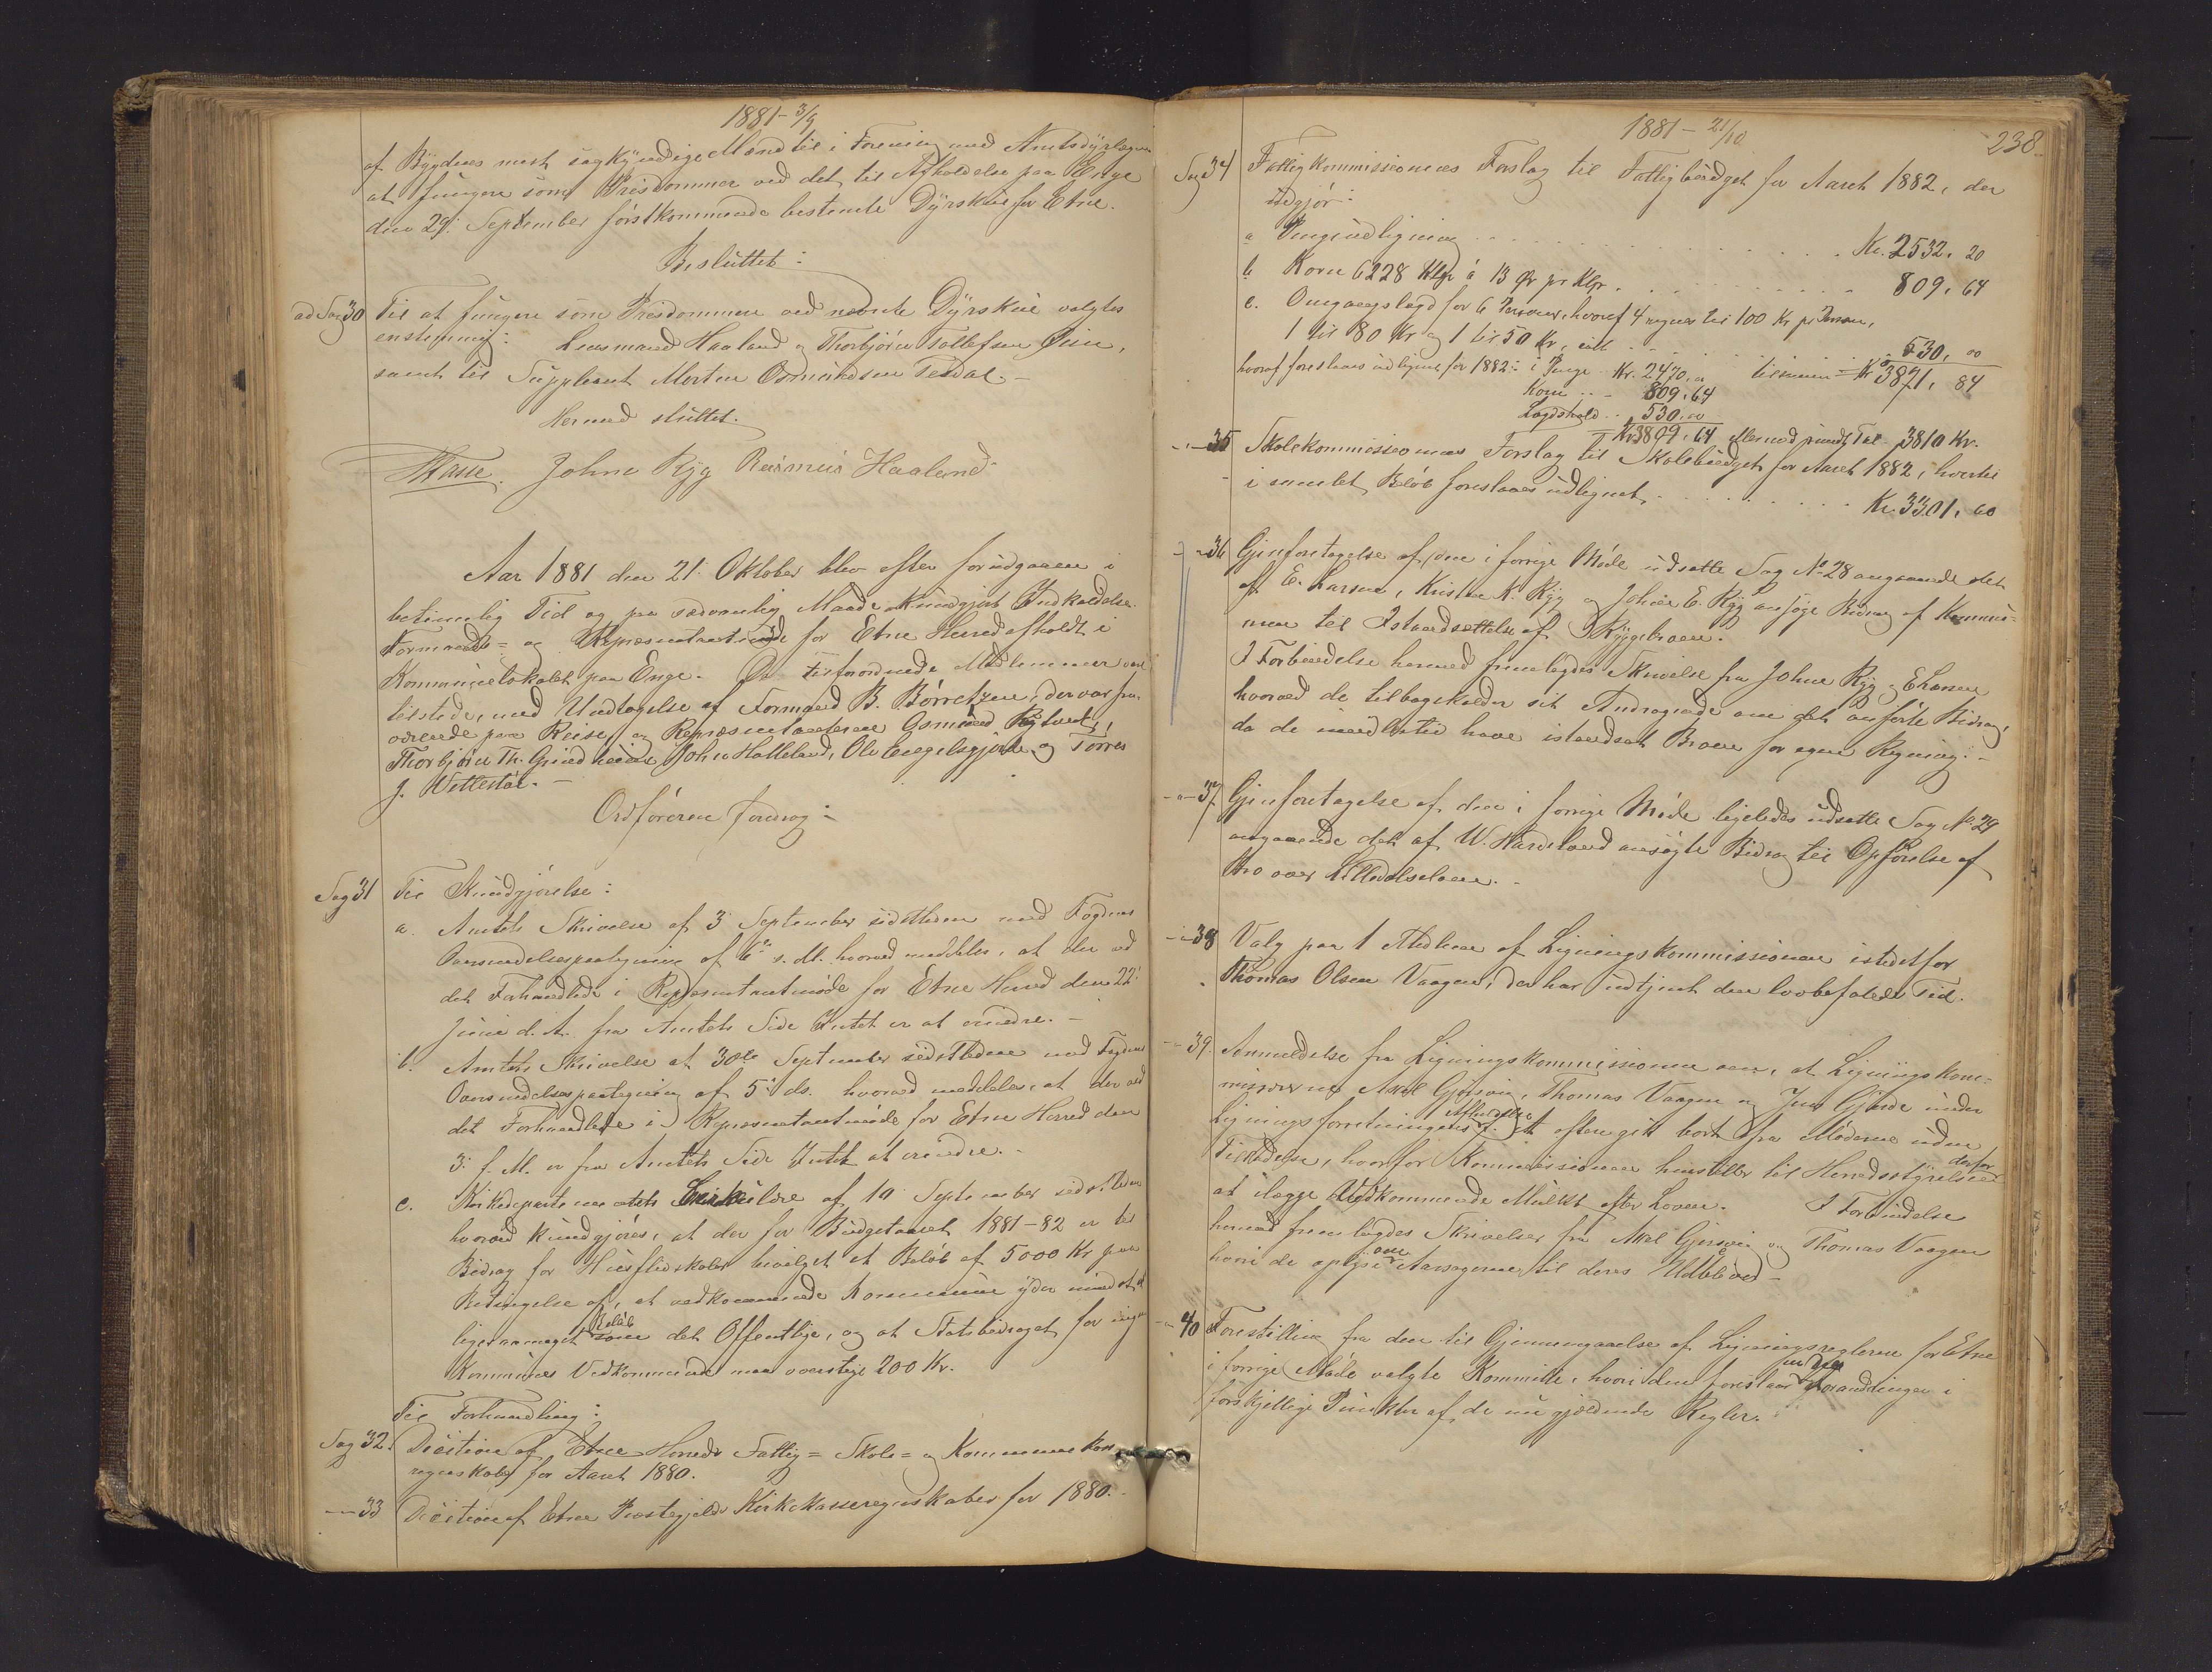 1881 - 3/9
af Bygdens mest sagkyndige Mænd til i Forening med Amtsdyrlægen
at fungere som Prisdommer ved det til Afholdelse paa Enge
den 29: September førstkommende bestemte Dyrskue for Etne.
Besluttet:
ad Sag 30 Til at fungere som Prisdommere ved nævnte Dyrskue valgtes
enstemmig: Lensmand Haaland og Thorbjørn Tollefsen Øien,
samt til Suppleant Morten Osmundsen Tesdal. -
Hermed sluttet.
Johne Ryg Rasmus Haaland
Aar 1881 den 21: Oktober blev efter forudgaaen i
betimelig Tid og paa sædvanlig Maade kundgjort Indkaldelse
Formands- og Repræsentantmøde for Etne Herred afholdt i
Kommunelokalet paa Enge. De tilforordnede Medlemmer vare
tilstede, med Undtagelse af Formand B. Børretzen, der var fra-
værende paa Reise, og Repræsentanterne Osmund
Thorbjørn Th. Grindheim, John Halleland, Ole Engelsgjerde og Tørres
J. Vettestøl. -
Ordføreren foredrog:
Sag 31 Til Kundgjørelse:
a. Amtets Skrivelse af 3: September sidstleden med Fogdens
Oversendelsespaategning af 6te s. M. hvorved meddeles, at der ved
det Forhandlede i Repræsentantmøde for Etne Herred den 22:
Juni d. A. fra Amtets Side Intet er at erindre. -
b. Amtets Skrivelse af 30te September sidstleden med Fogdens
Oversendelsespaategning af 5: ds. hvorved meddeles, at der ved
det Forhandlede i Repræsentantmøde for Etne Herred den
3: f. M. er fra Amtets Side Intet at erindre. -
c. Kirkedepartementets Cirkulære af 10 September sidstleden
hvorved kundgjøres, at der for Budgetaaret 1881-82 er til
Bidrag for Husflidsskoler bevilget et Beløb af 5000 Kr paa
Betingelse af, at vedkommende Kommune yder mindst et
ligesaameget Beløb som det Offentlige, og at Statsbidraget for ingen
Kommunes Vedkommende maa overstige 200 Kr.
Til Forhandling:
Sag 32. Decision af Etne Herreds Fattig- Skole- og Kommunekasse-
regnskaber for Aaret 1880.
-"- 33 Decision af Etne Præstegjelds Kirkekasseregnskaber for 1880. -
1881 - 21/10
238.
Sag 34 Fattigkommissionens Forslag til Fattigbudget for Aaret 1882, der
udgjør:
a Pengeudligning . . . . . . Kr. 2532, 20
b Korn 6228 Klgr à 13 Ør pr Klgr. . . . . . 809, 64
c. Omgangslægd for 6 Personer, hvoraf 4 regnes til 100 Kr pr Person,
1 til 80 Kr og 1 til 50 Kr, . . . . . . 530, 00
tilsammen Kr 3871, 84
hvoraf foreslaaes udlignet for 1882: i Penge Kr. 2470, "
Korn . . - 809, 64
Lægdshold . . 530, 00
= Kr 3809, 64 eller med rundt Tal 3810 Kr.
-"- 35 Skolekommissionens Forslag til Skolebudget for Aaret 1882, hvortil
i samlet Beløb foreslaaes udlignet . . . . . . Kr. 3301, 60
-"- 36 Gjenforetagelse af, den i forrige Møde udsatte Sag No 28 angaaende det
af E. Larsen, Kristen K. Ryg og Johne E. Ryg ansøgte Bidrag af Kommu-
nen til Istandsættelse af Ryggebroen.
I Forbindelse hermed fremlagdes Skrivelse fra Johne Ryg og E Larsen
hvorved de tilbagekalder sit Andragende om det anførte Bidrag,
da de imidlertid have istandsat Broen for egen Regning. -
-"- 37. Gjenforetagelse af, den i forrige Møde ligeledes udsatte Sag No 29
angaaende det af W. Hardeland ansøgte Bidrag til Opførelse af
Bro over Litledalselven. -
-"- 38 Valg paa 1 Medlem af Ligningskommissionen istedetfor
Thomas Olsen Vaagen, der har udtjent den lovbefalede Tid.
-"- 39. Anmeldelse fra Ligningskommissionen om, at Ligningskom-
missærerne Axel Gjersvig, Thomas Vaagen og Jens Gjerde under
Ligningsforretningens Afholdelse d. A. ofte gik bort fra Møderne uden
Tilladelse, hvorfor Kommissionen henstiller til Herredsstyrelsen derfor
at ilægge Vedkommende Mulkt efter Loven. I Forbindelse
hermed fremlagdes Skrivelser fra Axel Gjersvig og Thomas Vaagen
hvori de oplyse om Aarsagerne til deres Udebliven -
-"- 40 Forestilling fra den til Gjennemgaaelse af Ligningsreglerne for Etne
i forrige Møde valgte Kommitte, hvori den foreslaar Forandringer i
forskjellige Punkter af de nu gjældende Regler.